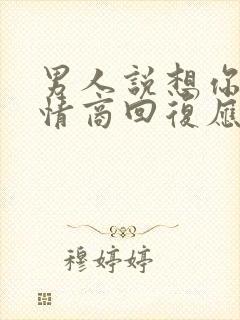 男人說想你
情商回復應
穆婷婷